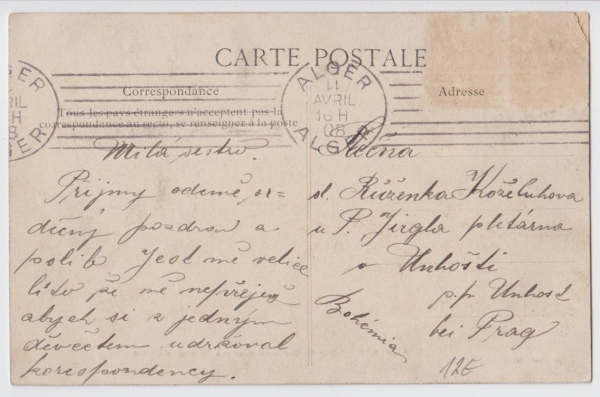 CARTE POSTALE
Correspondance
Tous les pays étrangers n'acceptent pas la
correspondance au recto, se renseigner à la poste
Adresse
ALGER
11
AVRIL
16 H
08
ALGER
Milá sestro.
Přijmy odemě sr=
dečný pozdrav a
polib Jest mě velice
líto že mě nepřeješ
abych si z jedným
děvčetem udržoval
korespondency.
Slečna
sl. Růženka Koželuhova
u P. Jirgla pletárna
v Unhošti
p.p. Unhošt
bei Prag
Bohémia
12E